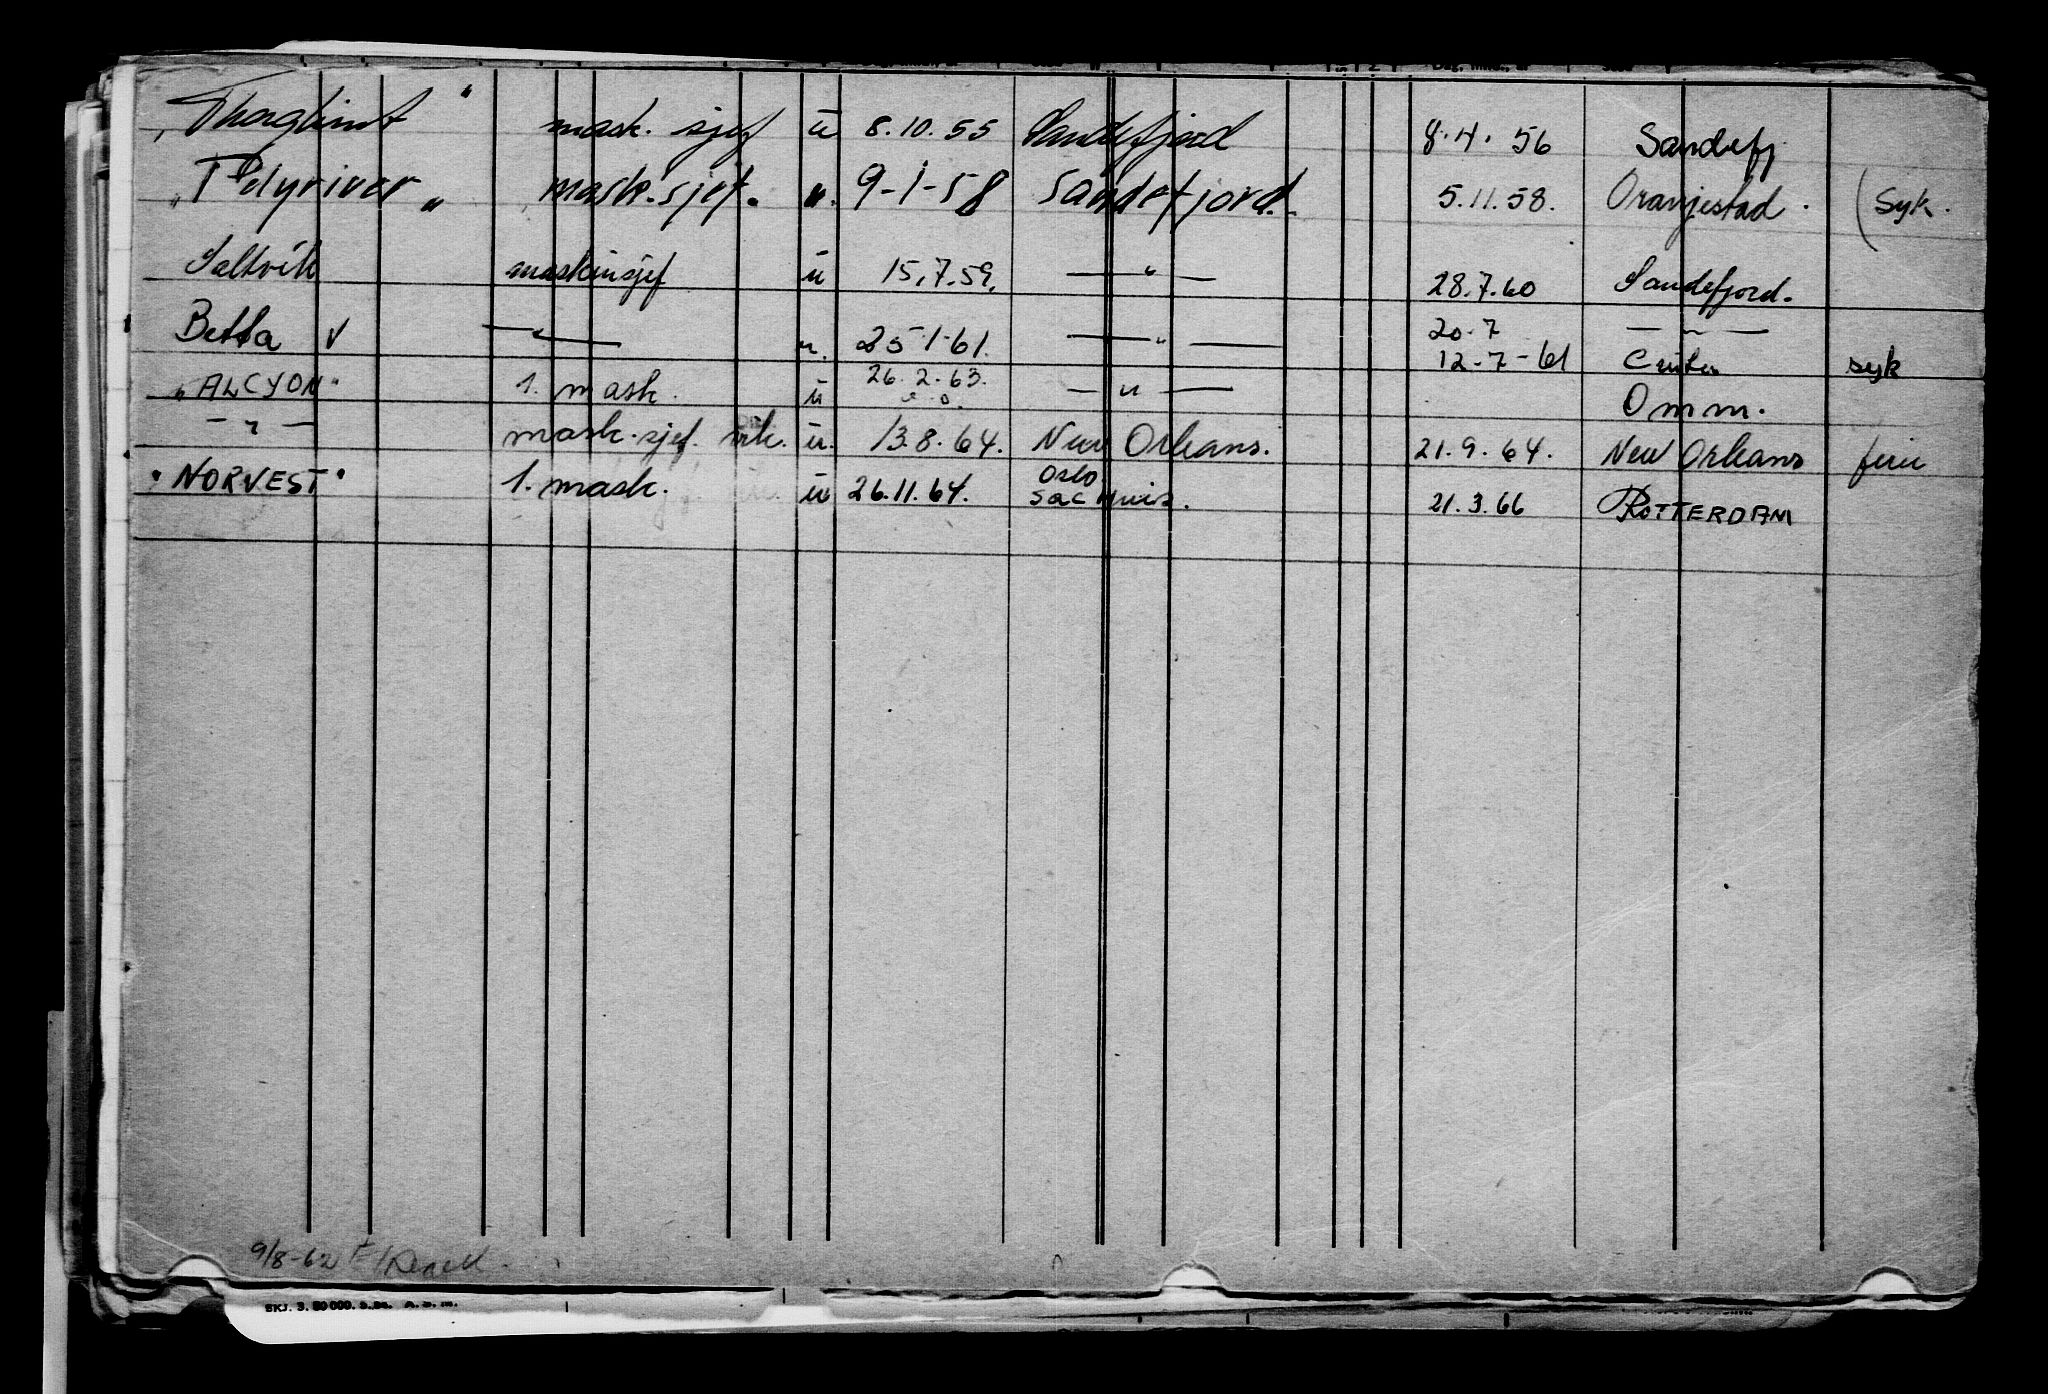 "Thorglimt" mask. sjef u 8.10.55 Sandefjord 8.4.56 Sandefj
"Polyriver" mask.sjef. u. 9-1-58 Sandefjord. 5.11.58. Oranjestad. (Syk.
Saltvik maskinsjef u 15.7.59. — " — 28.7.60 Sandefjord.
Betta v — " — u. 25.1.61. — " — 20.7 — " —
12-7-61 syk
"ALCYON" 1. mask. u 26.2.63. — " — Omm.
— " — mask.sjef. vik. u. 13.8.64. New Orleans. 21.9.64. New Orleans ferie
"NORVEST" 1. mask. u 26.11.64. Oslo 21.3.66 ROTTERDAM
9/8-62